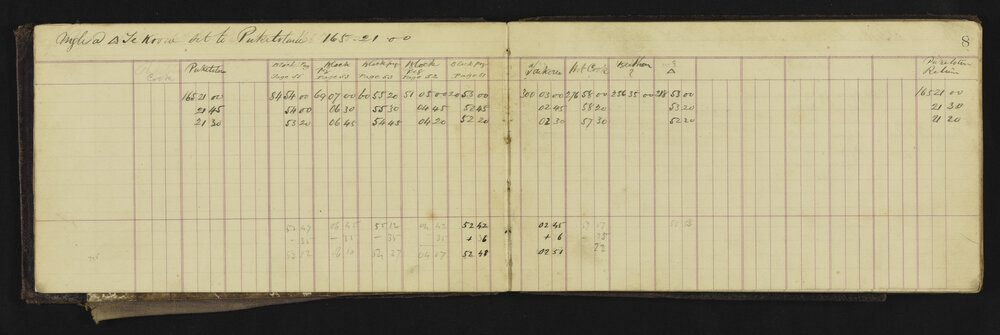 Angle @ △ Te Koroa set to Puketotara 165-21 00
8
Cook Puketotara Block Pg Page 55 Block Pg Page 53 Block pg Page 53 Block Pg Page 52 Block Pg Page 51 Mt Cook △ Puketotara Return
165 21 00 84 54 00 69 07 00 60 55 20 51 05 00 20 53 00 300 03 00 276 58 00 256 35 00 218 53 00 165 21 00
21 45 54 00 06 30 55 30 04 45 52 45 02 45 58 20 53 20 21 30
21 30 53 20 06 45 54 45 04 20 52 20 02 30 57 30 52 20 21 20
52 47 06 45 55 12 04 42 52 42 02 45
- 35 - 35 - 35 35 + 6 + 6 - 35
52 12 6 10 54 37 04 07 52 48 02 51 22